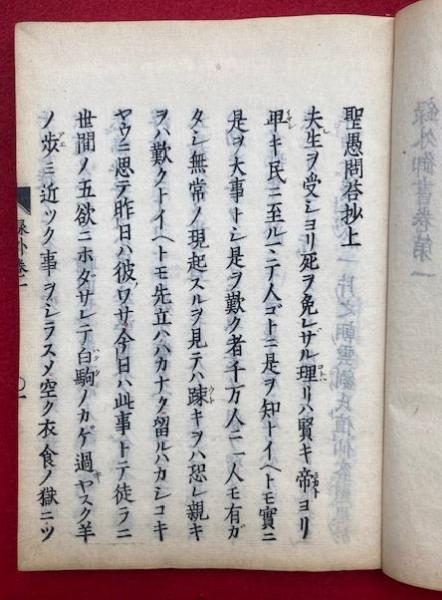 聖愚問答抄上
夫生ヲ受シヨリ死ヲ免レザル理リハ賢キ帝ヨリ
卑キ民ニ至ルマデ人ゴトニ是ヲ知トイヘトモ實ニ
是ヲ大事トシ是ヲ歎ク者千万人ニ一人モ有ガ
タシ無常ノ現起スルヲ見テハ疎キヲハ恐レ親キ
ヲハ歎クトイヘトモ先立ハハカナク留ルハカシコキ
ヤウニ思テ昨日ハ彼ワサ今日ハ此事トテ徒ラニ
世間ノ五欲ニホダサレテ白駒ノカゲ過ヤスク羊
ノ歩ミ近ツク事ヲシラスメ空ク衣食ノ獄ニツ
録外巻一
〇一
録外御書巻第一